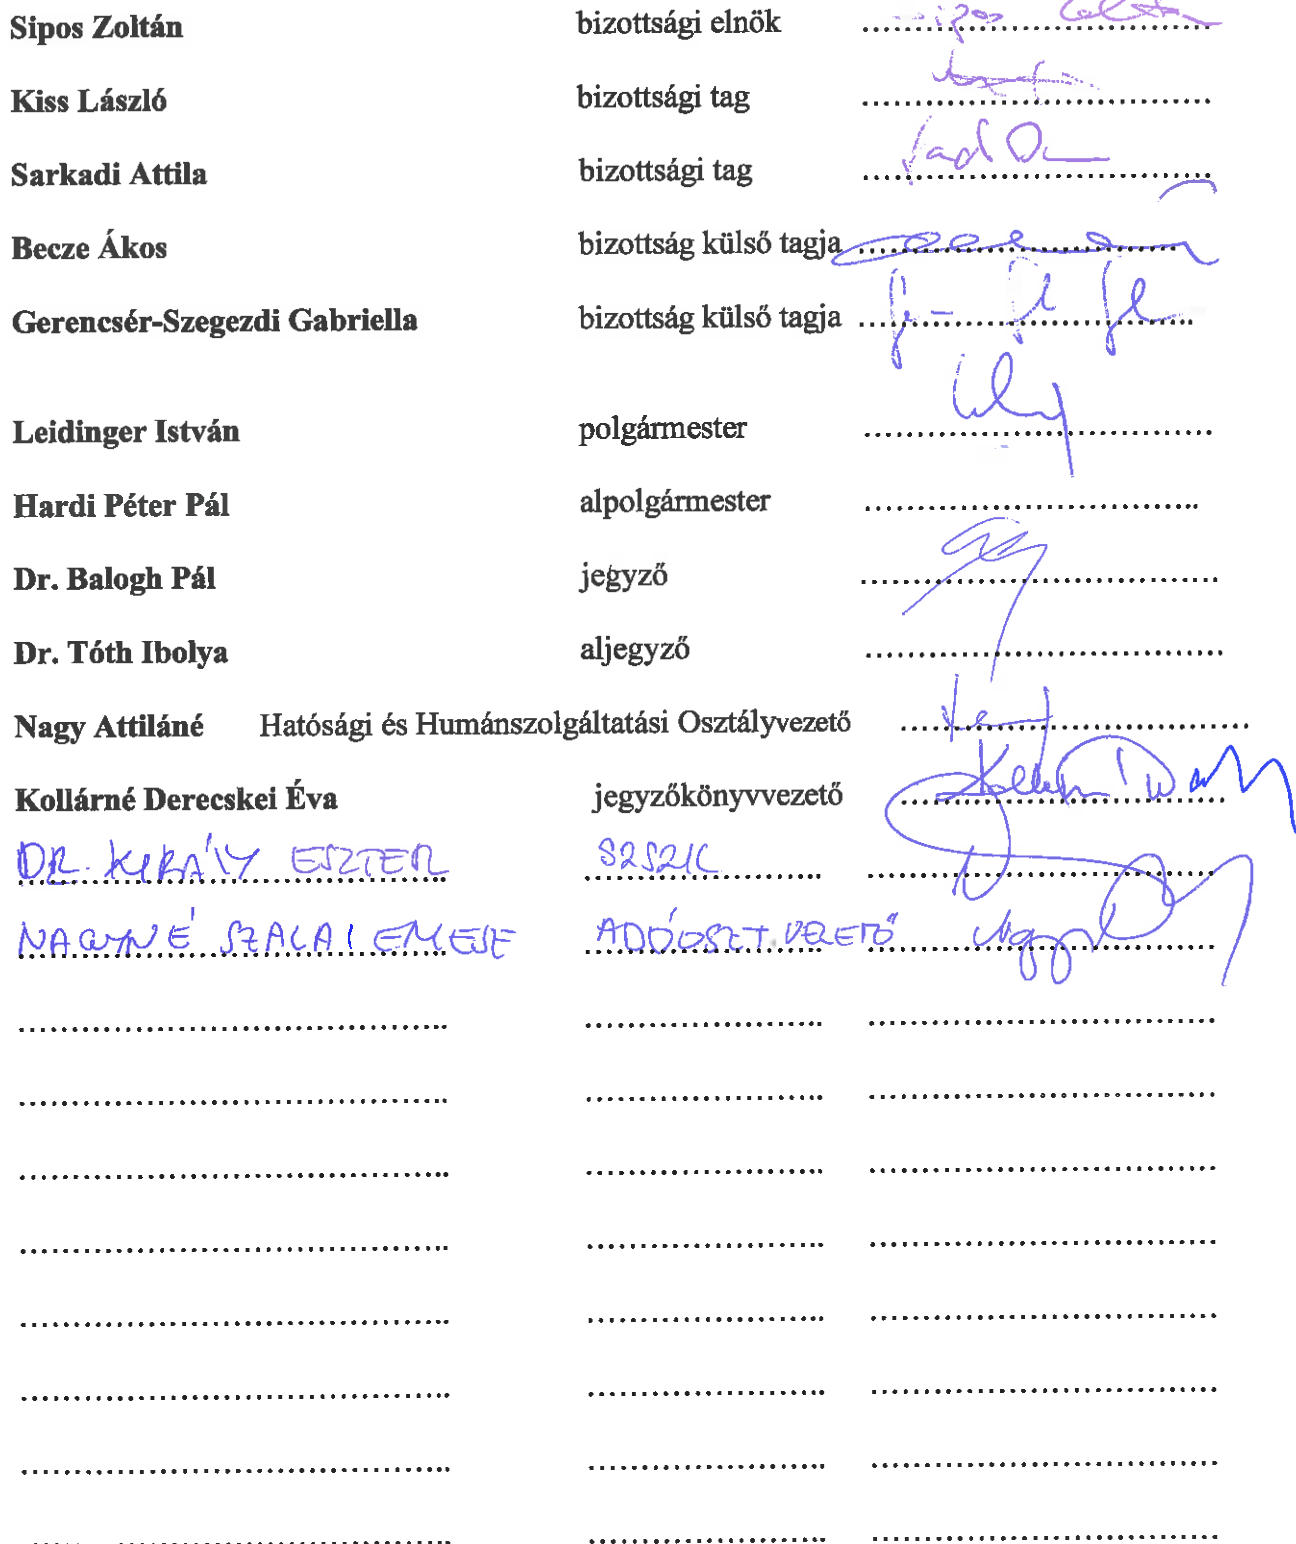 Sipos Zoltán bizottsági elnök
Kiss László bizottsági tag
Sarkadi Attila bizottsági tag
Becze Ákos bizottság külső tagja
Gerencsér-Szegezdi Gabriella bizottság külső tagja
Leidinger István polgármester
Hardi Péter Pál alpolgármester
Dr. Balogh Pál jegyző
Dr. Tóth Ibolya aljegyző
Nagy Attiláné Hatósági és Humánszolgáltatási Osztályvezető
Kollárné Derecskei Éva jegyzőkönyvvezető
DR. KIRÁLY ESZTER SZSZIC
NAGYNÉ SZALAI EMESE ADÓOSZT.VEZETŐ